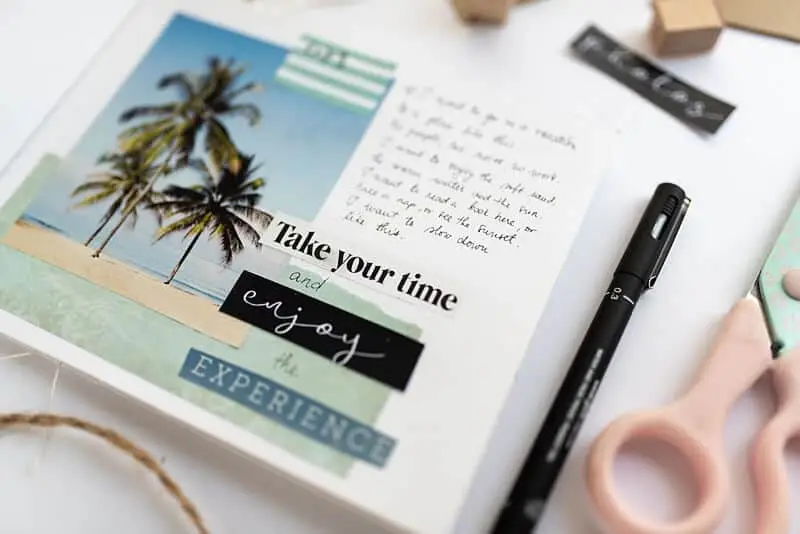 I want to go on a vacation
to a place like this.
No people, no noise, no work.
I want to enjoy the soft sand,
the warm water and the sun.
I want to read a book here, or
take a nap, or see the sunset.
I want to slow down
like this.
Take your time
and
enjoy
the
EXPERIENCE
photos
0.3